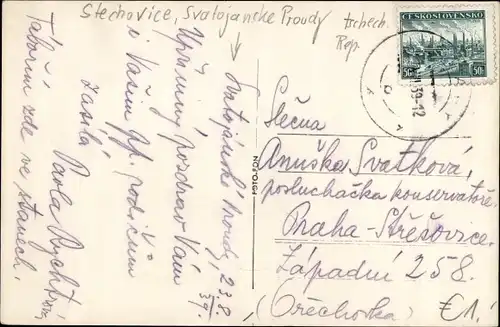 Stechovice, Svatojanske Proudy
tschech.
Rep.
ČESKOSLOVENSKO
50 50
39-12
Svatojánské proudy, 2.8.
39.
Upřímný pozdrav Vám
i Vašim pp. rodičům
zasílá
Pavla
Tábořím zde ve
stanech.
FOTOFON
Slečna
Anuška Svatková,
posluchačka konservatoře.
Praha-Střešovice.
Západní 258.
(Ořechovka)
€1,